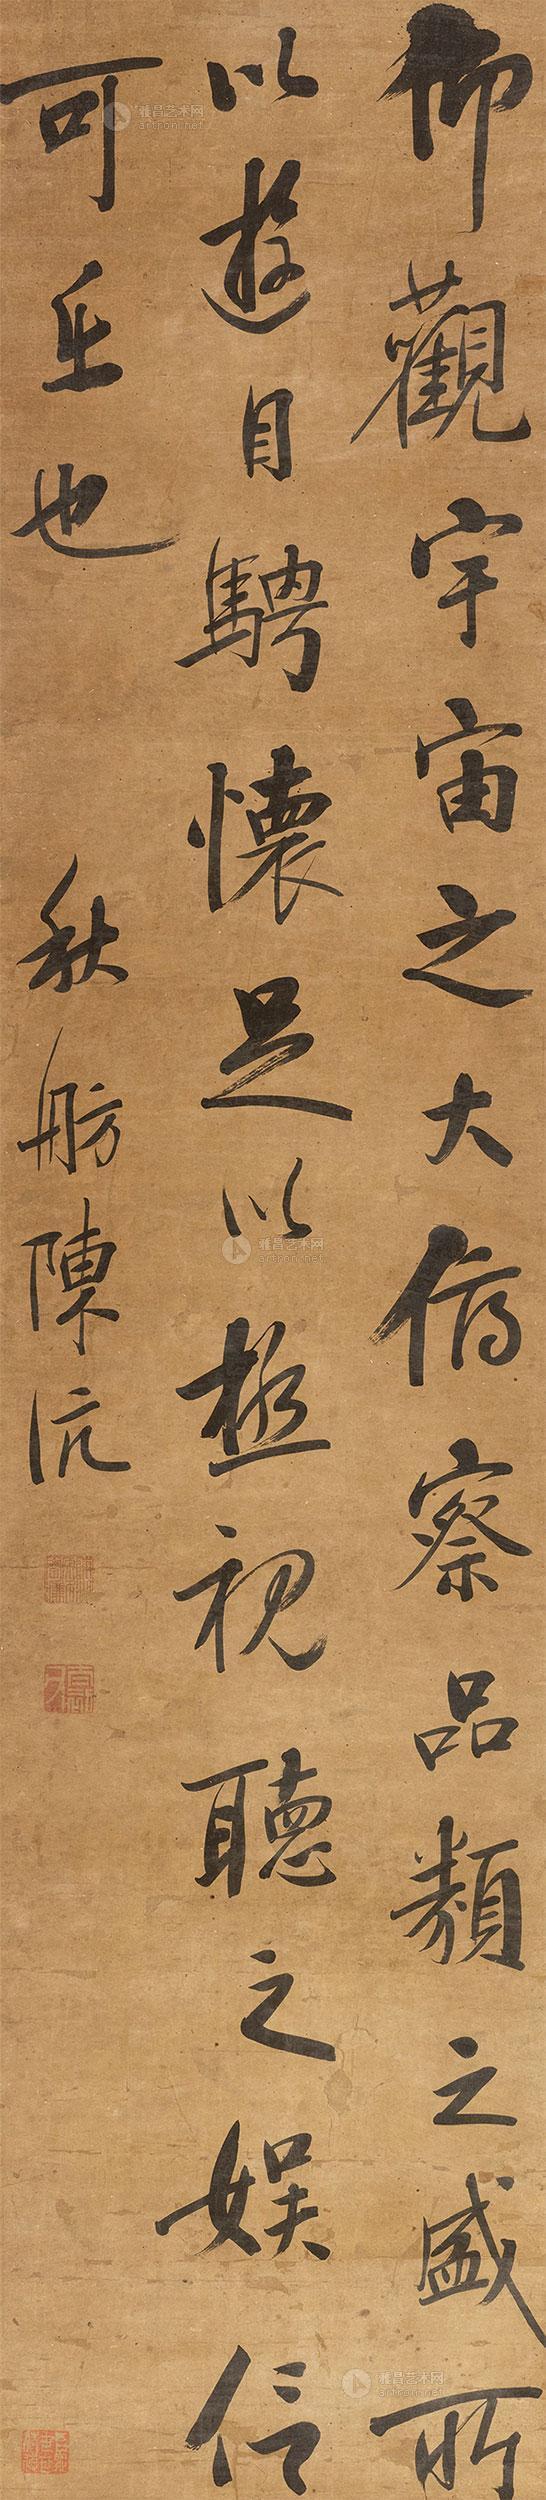 仰觀宇宙之大俯察品類之盛所
以遊目騁懷足以極視聽之娱信
可乐也
秋舫陳沆
雅昌艺术网
artron.net
雅昌艺术网
artron.net
雅昌艺术网
artron.net